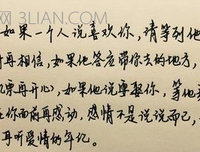 3LIAN.COM
如果一个人说喜欢你,请等到他
再相信,如果他答应带你去的地方,
再开心,如果他说要娶你,等他
你面前再感动,感情不是说说而已,
再听爱情的年纪。